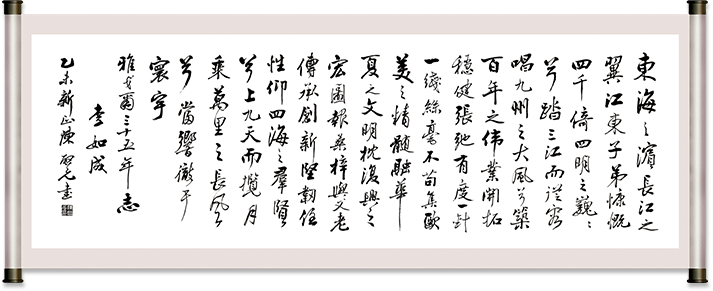 東海之濱長江之
翼江東子弟慷慨
四千倚四明之巍々
兮踏三江而從容
唱九州之大風兮築
百年之偉業開拓
穩健張弛有度一針
一線絲毫不苟集歐
美之精髓融華
夏之文明忱復興之
宏圖報桑梓與父老
傳承創新堅韌任
性仰四海之群賢
兮上九天而攬月
乘萬里之長風
兮當響徹乎
寰宇
雅戈爾三十五年志
李如成
乙未新正陳